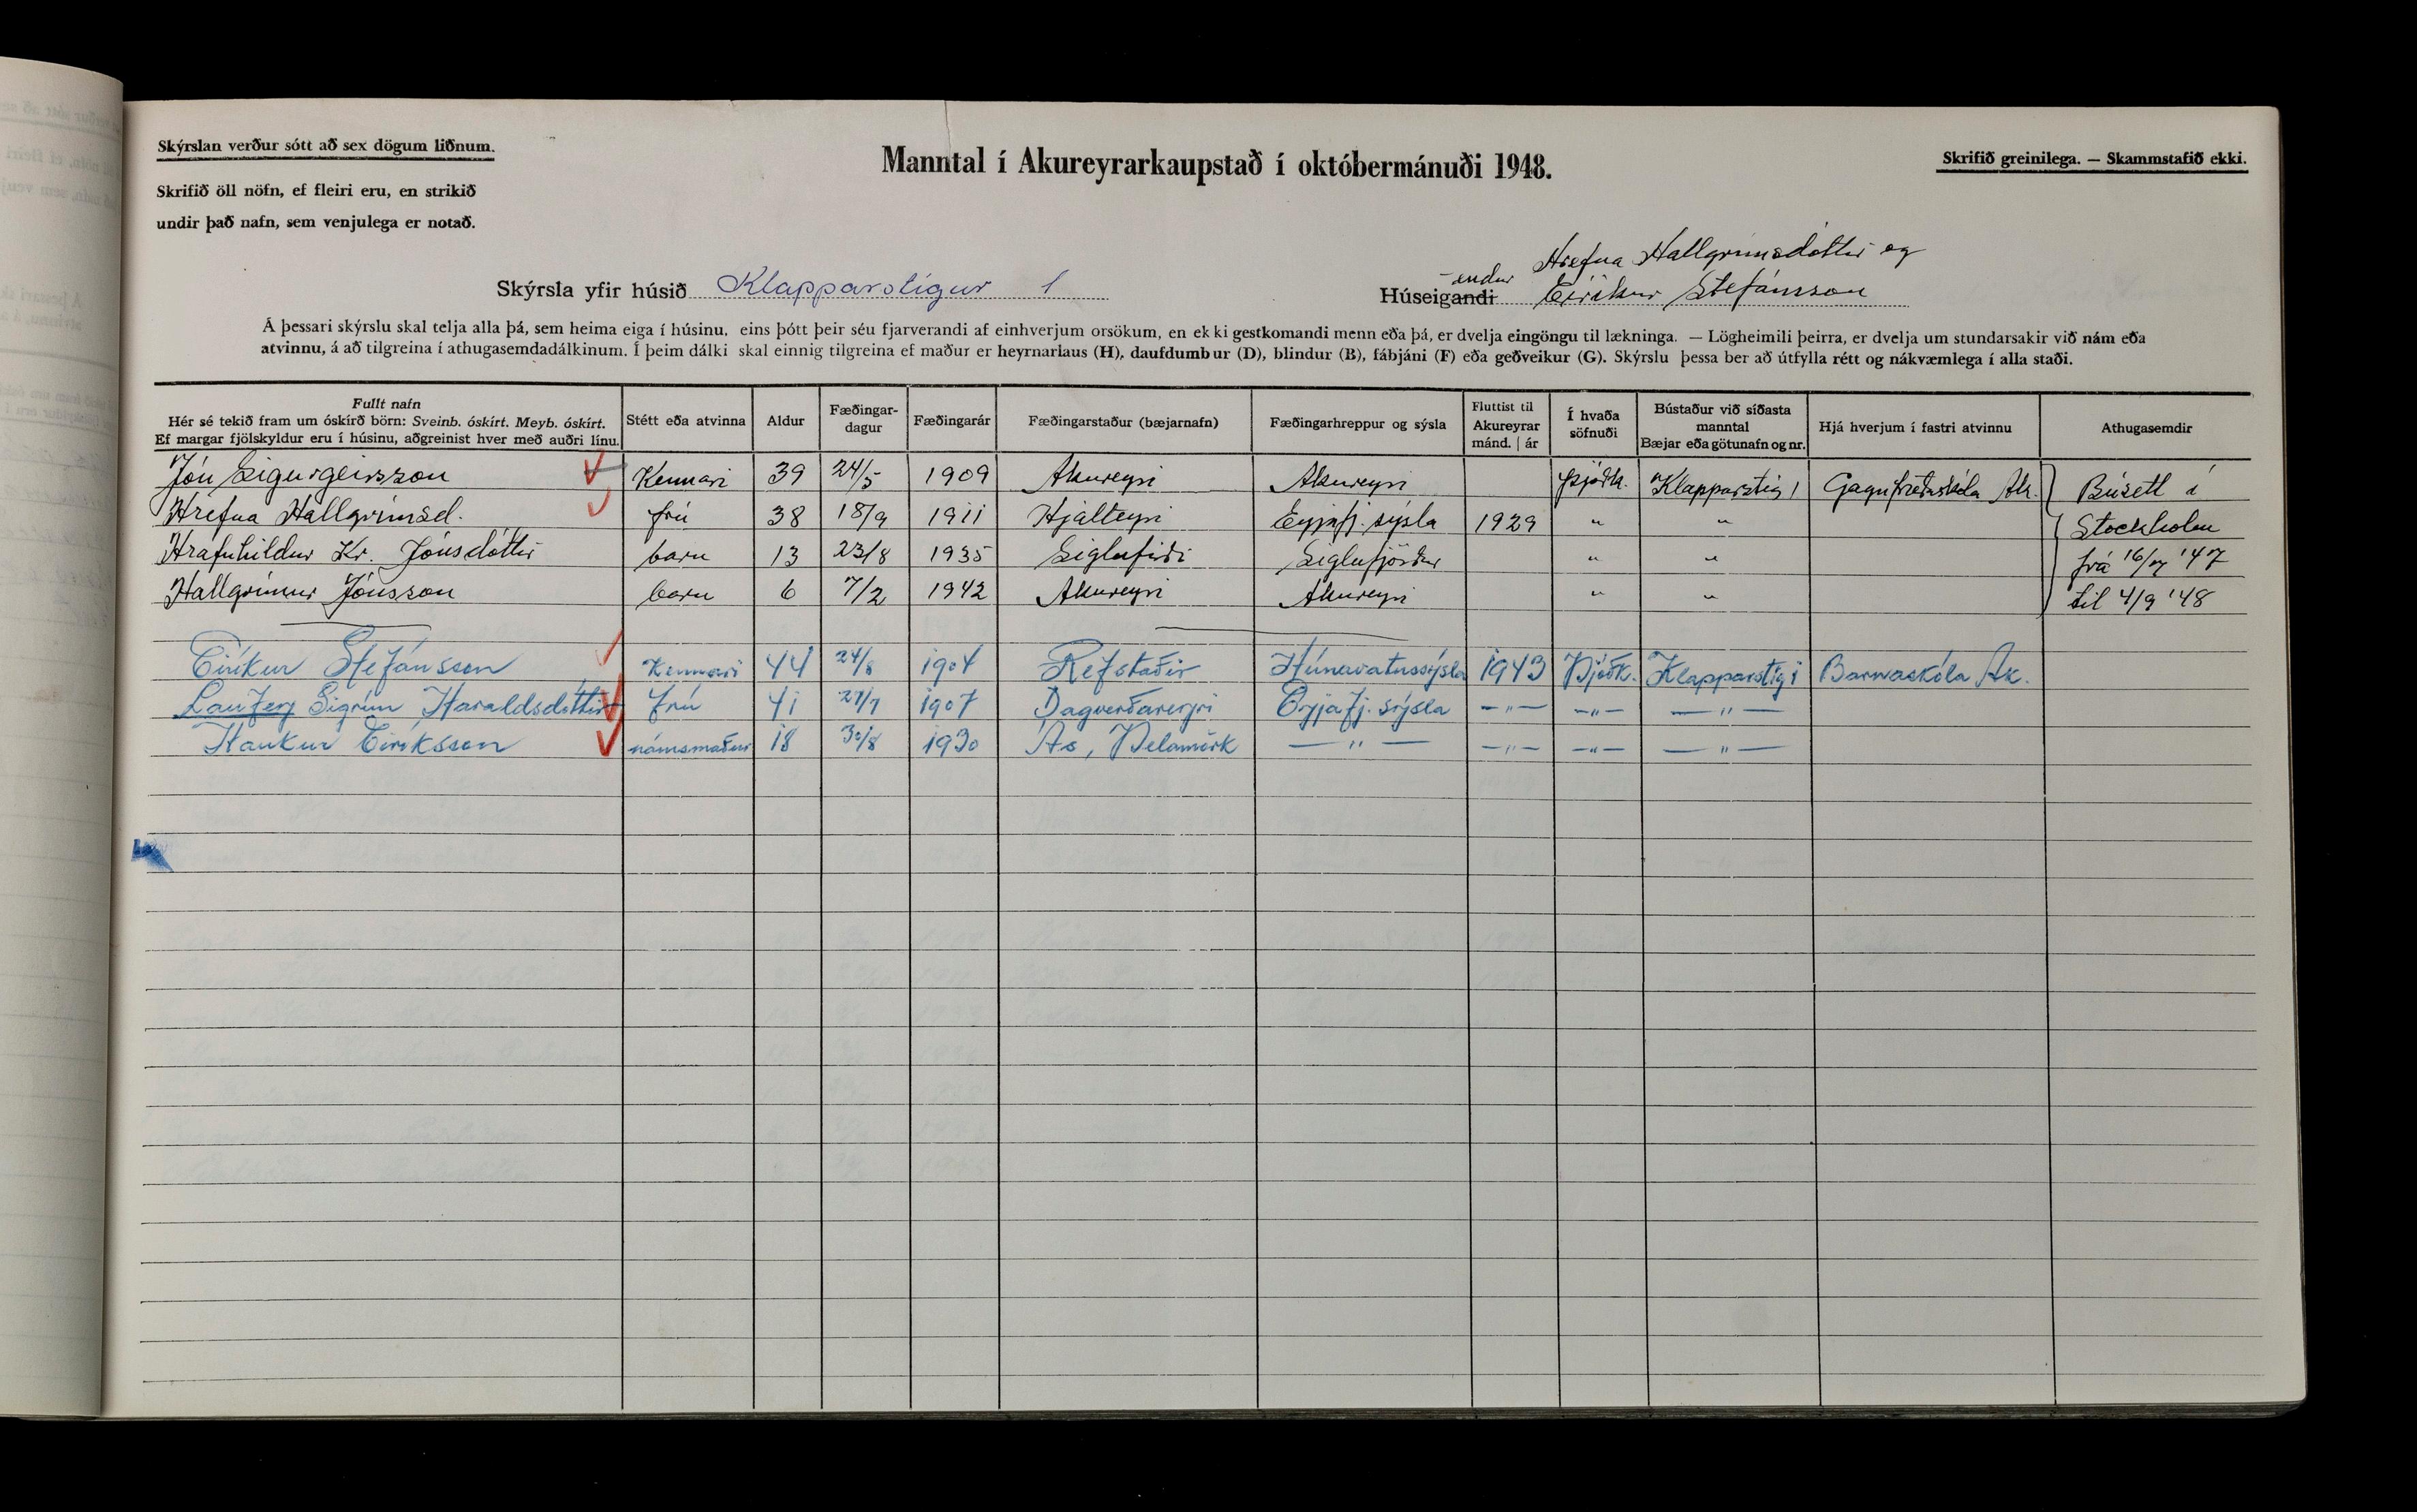 Skýrslan verður sótt að sex dögum liðnum.
Skrifið öll nöfn, ef fleiri eru, en strikið
undir það nafn, sem venjulega er notað.
Manntal í Akureyrarkaupstað í októbermánuði 1948.
Skrifið greinilega. — Skammstafið ekki.
Skýrsla yfir húsið Klapparstígur 1
Hrefna Hallgrímsdóttir og
Húseigandi endur Eiríkur Stefánsson
Á þessari skýrslu skal telja alla þá, sem heima eiga í húsinu, eins þótt þeir séu fjarverandi af einhverjum orsökum, en ekki gestkomandi menn eða þá, er dvelja eingöngu til lækninga. — Lögheimili þeirra, er dvelja um stundarsakir við nám eða
atvinnu, á að tilgreina í athugasemdadálkinum. Í þeim dálki skal einnig tilgreina ef maður er heyrnarlaus (H), daufdumbur (D), blindur (B), fábjáni (F) eða geðveikur (G). Skýrslu þessa ber að útfylla rétt og nákvæmlega í alla staði.
Fullt nafn
Hér sé tekið fram um óskírð börn: Sveinb. óskírt. Meyb. óskírt.
Ef margar fjölskyldur eru í húsinu, aðgreinist hver með auðri línu.
Stétt eða atvinna
Aldur
Fæðingar-
dagur
Fæðingarár
Fæðingarstaður (bæjarnafn)
Fæðingarhreppur og sýsla
Fluttist til
Akureyrar
mánd. | ár
Í hvaða
söfnuði
Bústaður við síðasta
manntal
Bæjar eða götunafn og nr.
Hjá hverjum í fastri atvinnu
Athugasemdir
Jón Sigurgeirsson Kennari 39 24/5 1909 Akureyri Akureyri þjóðk. Klapparstíg 1 Gagnfræðaskóla Ak. Búsett í
Hrefna Hallgrímsd. frú 38 18/9 1911 Hjalteyri Eyjafj. sýsla 1929 " " Stockholm
Hrafnhildur Kr. Jónsdóttir barn 13 23/8 1935 Siglufirði Siglufjörður " " frá 16/9 '47
Hallgrímur Jónsson barn 6 7/2 1942 Akureyri Akureyri " " til 4/9 '48
Eiríkur Stefánsson Kennari 44 24/8 1904 Refstaðir Húnavatnssýsla 1943 Þjóðk. Klapparstíg 1 Barnaskóla Ak.
Laufey Sigrún Haraldsdóttir frú 41 27/7 1907 Dagverðareyri Eyjafj. sýsla —"— —"— —"—
Haukur Eiríksson námsmaður 18 30/8 1930 Ás, Þelamörk —"— —"— —"— —"—